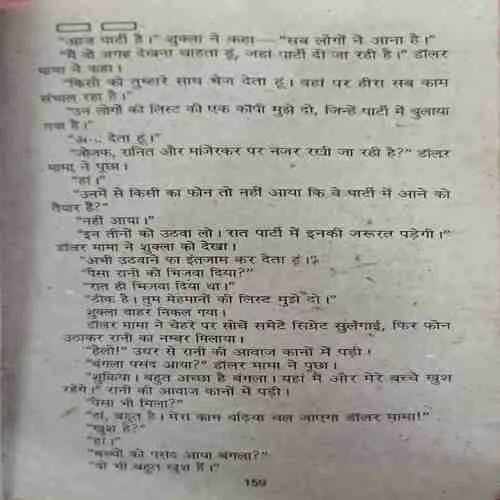 "आज पार्टी है।" शुक्ला ने कहा—"सब लोगों ने आना है।"
"मैं वो जगह देखना चाहता हूं, जहां पार्टी दी जा रही है।" डॉलर
मामा ने कहा।
"किसी को तुम्हारे साथ भेज देता हूं। वहां पर हीरा सब काम
संभाल रहा है।"
"उन लोगों की लिस्ट की एक कॉपी मुझे दो, जिन्हें पार्टी में बुलाया
गया है।"
देता हूं।"
"जोजफ, और मांजेरकर पर नजर रखी जा रही है?" डॉलर
मामा ने पूछा।
"हां।"
"उनमें से किसी का फोन तो नहीं आया कि वे पार्टी में आने को
तैयार हैं?"
"नहीं आया।"
"इन तीनों को उठवा लो। रात पार्टी में इनकी जरूरत पड़ेगी।"
डॉलर मामा ने शुक्ला को देखा।
"अभी उठवाने का इंतजाम कर देता हूं।"
"पैसा रानी को भिजवा दिया?"
"रात ही भिजवा दिया था।"
"ठीक है। तुम मेहमानों की लिस्ट मुझे दो।"
शुक्ला बाहर निकल गया।
डॉलर मामा ने चेहरे पर सोचें समेटे सिग्रेट सुलगाई, फिर फोन
उठाकर रानी का नम्बर मिलाया।
"हैलो!" उधर से रानी की आवाज कानों में पड़ी।
"बंगला पसंद आया?" डॉलर मामा ने पूछा।
"शुक्रिया। बहुत अच्छा है बंगला। यहां मैं और मेरे बच्चे खुश
रहेंगे।" रानी की आवाज कानों में पड़ी।
"पैसा भी मिला?"
"हां, बहुत है। मेरा काम बढ़िया चल जाएगा डॉलर मामा!"
"खुश है?"
"हां।"
"बच्चों को पसंद आया बंगला?"
"वो भी बहुत खुश हैं।"
159